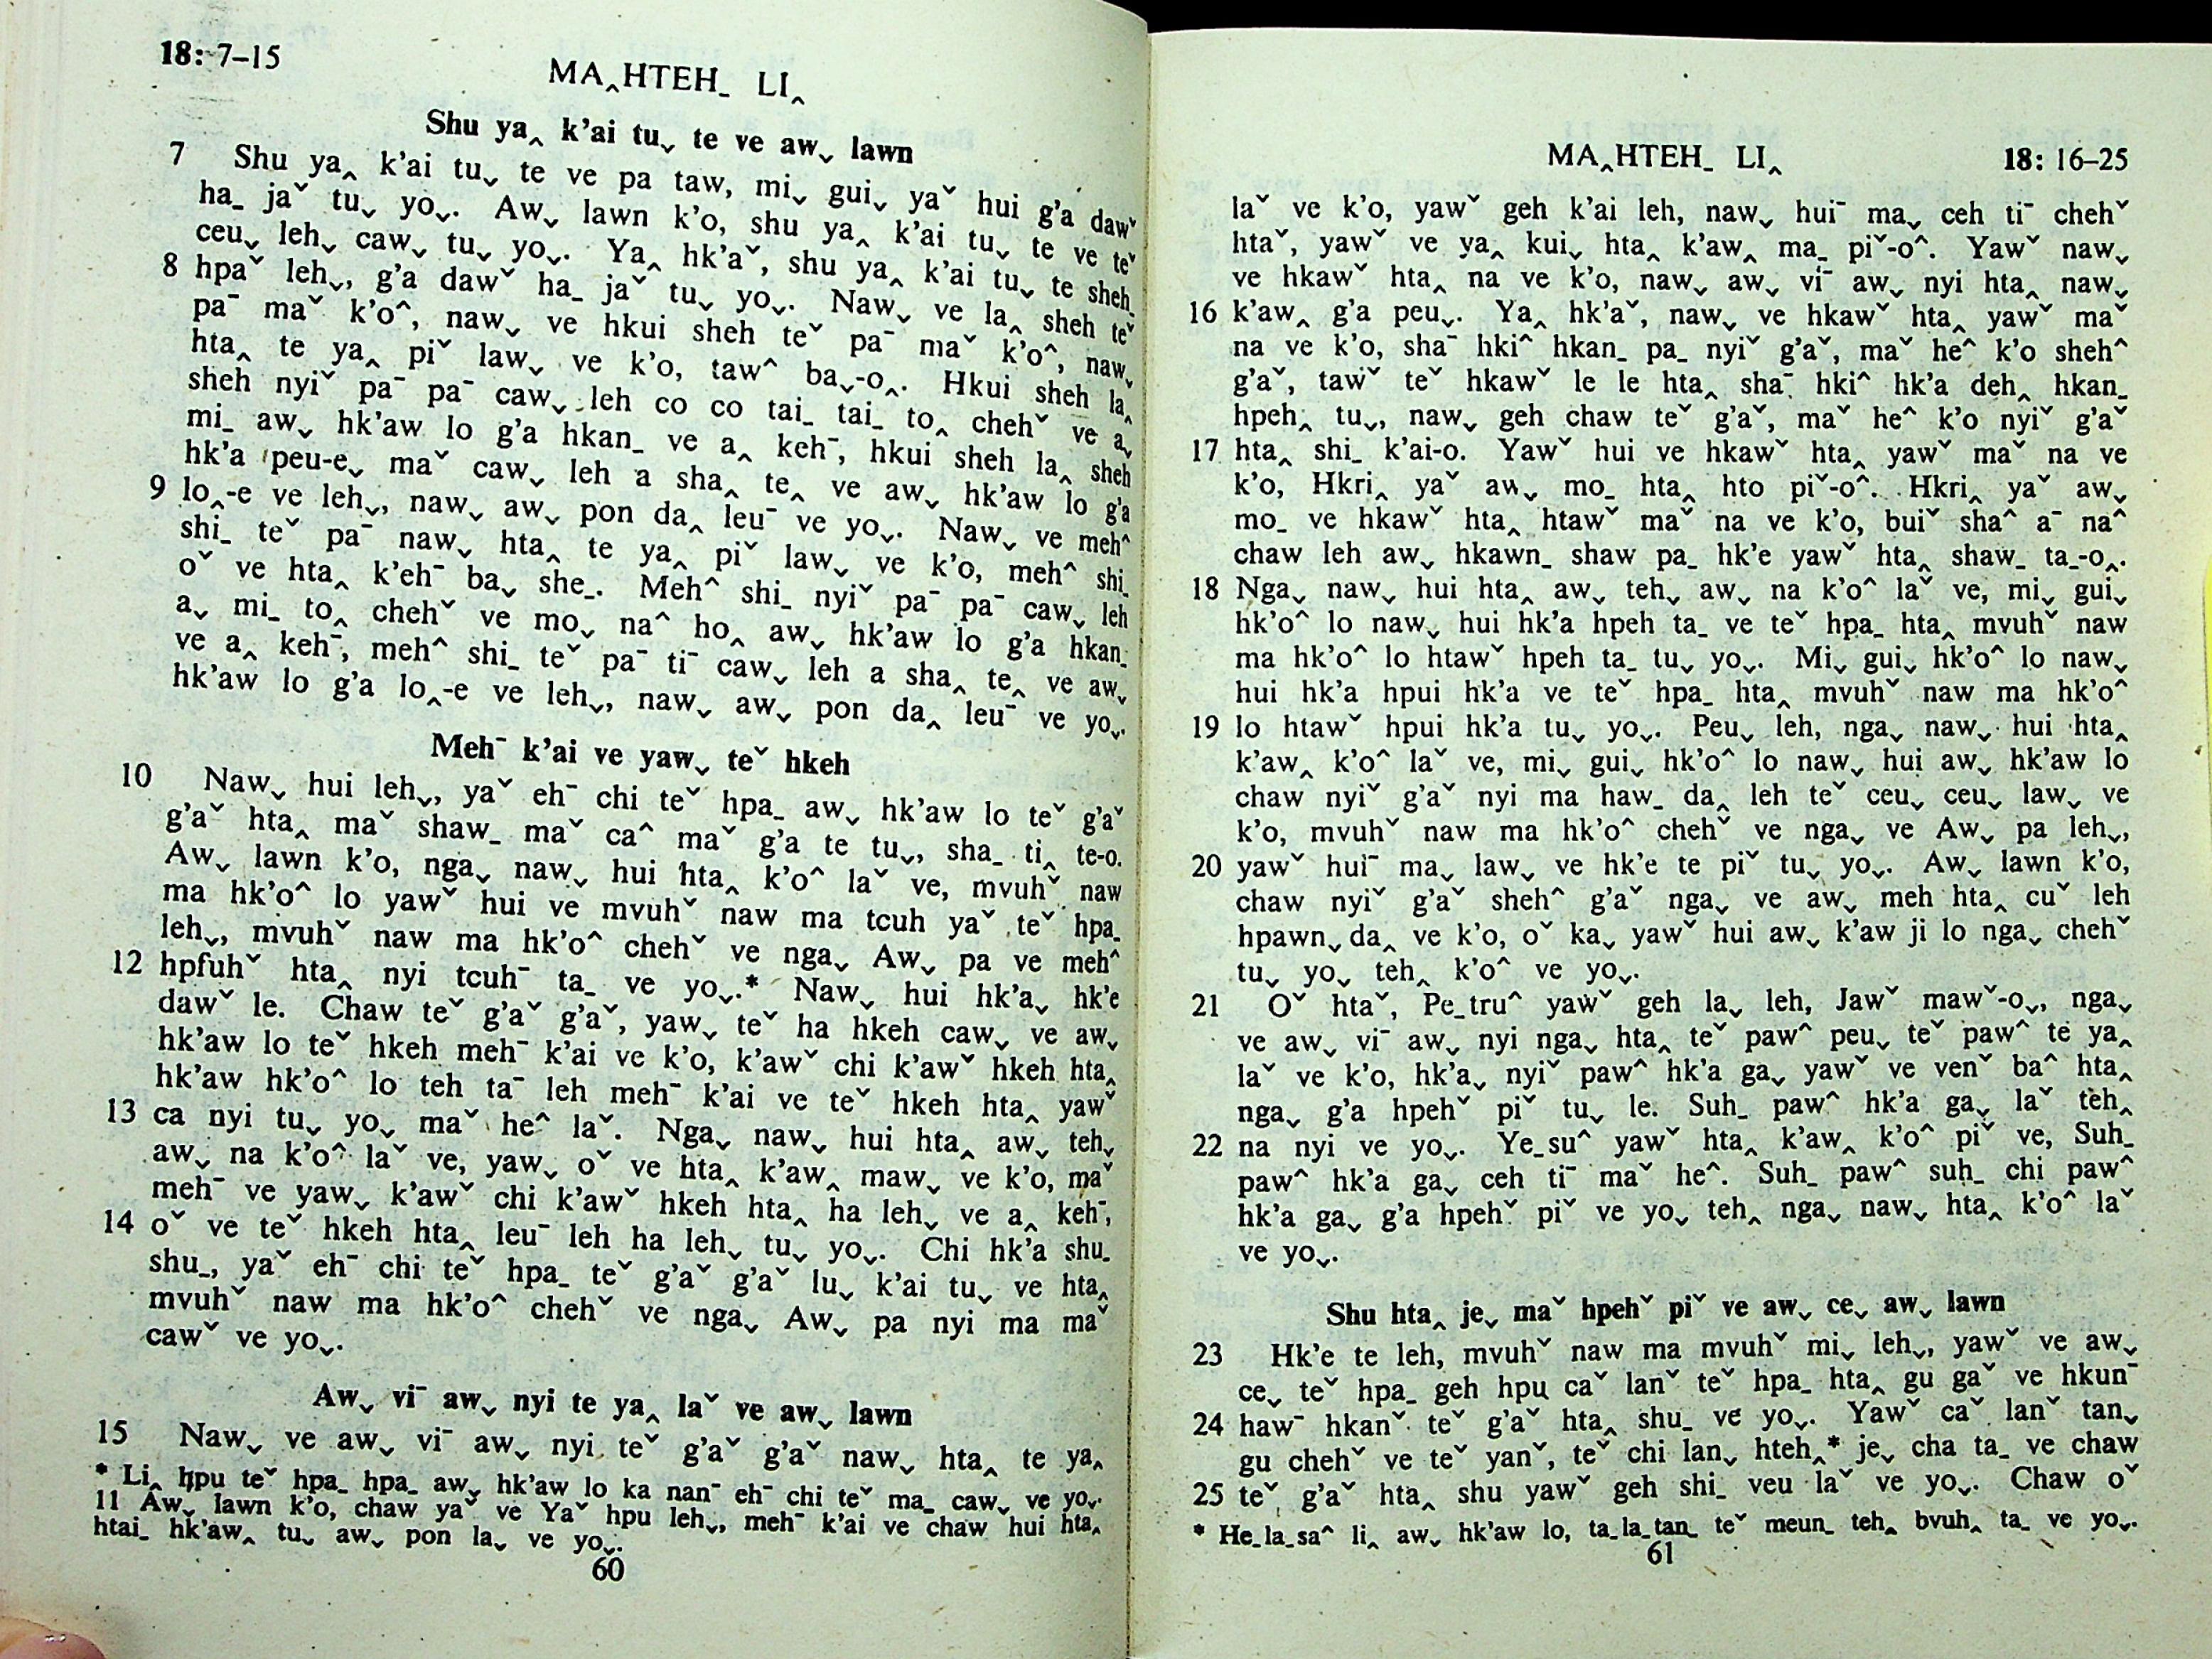 18: 7–15
MA‸HTEH˗ LI‸
Shu ya‸ k’ai tuˬ te ve awˬ lawn
7 Shu ya‸ k’ai tuˬ te ve pa taw, miˬ guiˬ yaˇ hui g’a dawˇ
ha˗ jaˇ tuˬ yoˬ. Awˬ lawn k’o, shu ya‸ k’ai tuˬ te ve teˇ
ceuˬ lehˬ cawˬ tuˬ yoˬ. Ya‸ hk’aˇ, shu ya‸ k’ai tuˬ te sheh˗
8 hpaˇ lehˬ, g’a dawˇ ha˗ jaˇ tuˬ yoˬ. Nawˬ ve la‸ sheh teˇ
paˉ maˇ k’oˆ, nawˬ ve hkui sheh teˇ paˉ maˇ k’oˆ, nawˬ
hta‸ te ya‸ piˇ lawˬ ve k’o, tawˆ baˬ-o‸. Hkui sheh la‸
sheh nyiˇ paˉ paˉ cawˬ leh co co tai˗ tai˗ to‸ chehˇ ve aˬ
mi˗ awˬ hk’aw lo g’a hkan˗ ve a‸ kehˉ, hkui sheh la‸ sheh
hk’a peu-eˬ maˇ cawˬ leh a sha‸ te‸ ve awˬ hk’aw lo g’a
9 lo‸-e ve lehˬ, nawˬ awˬ pon da‸ leuˉ ve yoˬ. Nawˬ ve mehˆ
shi˗ teˇ paˉ nawˬ hta‸ te ya‸ piˇ lawˬ ve k’o, mehˆ shi˗
oˇ ve hta‸ k’ehˉ baˬ she˗. Mehˆ shi˗ nyiˇ paˉ paˉ cawˬ leh
aˬ mi˗ to‸ chehˇ ve moˬ naˆ ho‸ awˬ hk’aw lo g’a hkan˗
ve a‸ kehˉ, mehˆ shi˗ teˇ paˉ tiˉ cawˬ leh a sha‸ te‸ ve awˬ
hk’aw lo g’a lo‸-e ve lehˬ, nawˬ awˬ pon da‸ leuˉ ve yoˬ.
Mehˉ k’ai ve yawˬ teˇ hkeh
10 Nawˬ hui lehˬ, yaˇ ehˉ chi teˇ hpa˗ awˬ hk’aw lo teˇ g’aˇ
g’aˇ hta‸ maˇ shaw˗ maˇ caˆ maˇ g’a te tuˬ, sha˗ ti‸ te-o.
Awˬ lawn k’o, ngaˬ nawˬ hui hta‸ k’oˆ laˇ ve, mvuhˇ naw
ma hk’oˆ lo yawˇ hui ve mvuhˇ naw ma tcuh yaˇ teˇ hpa˗
lehˬ, mvuhˇ naw ma hk’oˆ chehˇ ve ngaˬ Awˬ pa ve mehˆ
12 hpfuhˇ hta‸ nyi tcuhˉ ta˗ ve yoˬ.* Nawˬ hui hk’aˬ hk’e
dawˇ le. Chaw teˇ g’aˇ g’aˇ, yawˬ teˇ ha hkeh cawˬ ve awˬ
hk’aw lo teˇ hkeh mehˉ k’ai ve k’o, k’awˇ chi k’awˇ hkeh hta‸
hk’aw hk’oˆ lo teh taˉ leh mehˉ k’ai ve teˇ hkeh hta‸ yawˇ
13 ca nyi tuˬ yoˬ maˇ heˆ laˇ. Ngaˬ nawˬ hui hta‸ awˬ tehˬ
awˬ na k’oˆ laˇ ve, yawˬ oˇ ve hta‸ k’aw‸ mawˬ ve k’o, maˇ
mehˉ ve yawˬ k’awˇ chi k’awˇ hkeh hta‸ ha lehˬ ve a‸ kehˉ,
14 oˇ ve teˇ hkeh hta‸ leuˉ leh ha lehˬ tuˬ yoˬ. Chi hk’a shu˗
shu˗, yaˇ ehˉ chi teˇ hpa˗ teˇ g’aˇ g’aˇ luˬ k’ai tuˬ ve hta‸
mvuhˇ naw ma hk’oˆ chehˇ ve ngaˬ Awˬ pa nyi ma maˇ
cawˇ ve yoˬ.
Awˬ viˉ awˬ nyi te ya‸ laˇ ve awˬ lawn
15 Nawˬ ve awˬ viˉ awˬ nyi teˇ g’aˇ g’aˇ nawˬ hta‸ te ya‸
* Li‸ hpu teˇ hpa˗ hpa˗ awˬ hk’aw lo ka nanˉ ehˉ chi teˇ ma˗ cawˬ ve yoˬ.
11 Awˬ lawn k’o, chaw yaˇ ve Yaˇ hpu lehˬ, mehˉ k’ai ve chaw hui hta‸
htai˗ hk’aw‸ tuˬ awˬ pon laˬ ve yoˬ.
60
MA‸HTEH˗ LI‸ 18: 16–25
laˇ ve k’o, yawˇ geh k’ai leh, nawˬ huiˉ maˬ ceh tiˉ chehˇ
htaˇ, yawˇ ve ya‸ kuiˬ hta‸ k’aw‸ ma˗ piˇ-oˆ. Yawˇ nawˬ
ve hkawˇ hta‸ na ve k’o, nawˬ awˬ viˉ awˬ nyi hta‸ nawˬ
16 k’aw‸ g’a peuˬ. Ya‸ hk’aˇ, nawˬ ve hkawˇ hta‸ yawˇ maˇ
na ve k’o, shaˉ hkiˆ hkan˗ pa˗ nyiˇ g’aˇ, maˇ heˆ k’o shehˆ
g’aˇ, tawˇ teˇ hkawˇ le le hta‸ shaˉ hkiˆ hk’a deh‸ hkan˗
hpeh‸ tuˬ, nawˬ geh chaw teˇ g’aˇ, maˇ heˆ k’o nyiˇ g’aˇ
17 hta‸ shi˗ k’ai-o. Yawˇ hui ve hkawˇ hta‸ yawˇ maˇ na ve
k’o, Hkri‸ yaˇ awˬ mo˗ hta‸ hto piˇ-oˆ. Hkri‸ yaˇ awˬ
mo˗ ve hkawˇ hta‸ htawˇ maˇ na ve k’o, buiˇ shaˆ aˉ naˆ
chaw leh awˬ hkawn˗ shaw pa˗ hk’e yawˇ hta‸ shaw˗ ta˗-o‸.
18 Ngaˬ nawˬ hui hta‸ awˬ tehˬ awˬ na k’oˆ laˇ ve, miˬ guiˬ
hk’oˆ lo nawˬ hui hk’a hpeh ta˗ ve teˇ hpa˗ hta‸ mvuhˇ naw
ma hk’oˆ lo htawˇ hpeh ta˗ tuˬ yoˬ. Miˬ guiˬ hk’oˆ lo nawˬ
hui hk’a hpui hk’a ve teˇ hpa˗ hta‸ mvuhˇ naw ma hk’oˆ
19 lo htawˇ hpui hk’a tuˬ yoˬ. Peuˬ leh, ngaˬ nawˬ hui hta‸
k’aw‸ k’oˆ laˇ ve, miˬ guiˬ hk’oˆ lo nawˬ hui awˬ hk’aw lo
chaw nyiˇ g’aˇ nyi ma haw˗ da‸ leh teˇ ceuˬ ceuˬ lawˬ ve
k’o, mvuhˇ naw ma hk’oˆ chehˇ ve ngaˬ ve Awˬ pa lehˬ,
20 yawˇ huiˉ maˬ lawˬ ve hk’e te piˇ tuˬ yoˬ. Awˬ lawn k’o,
chaw nyiˇ g’aˇ shehˆ g’aˇ ngaˬ ve awˬ meh hta‸ cuˇ leh
hpawnˬ da‸ ve k’o, oˇ kaˬ yawˇ hui awˬ k’aw ji lo ngaˬ chehˇ
tuˬ yoˬ teh‸ k’oˆ ve yoˬ.
21 Oˇ htaˇ, Pe˗truˆ yawˇ geh laˬ leh, Jawˇ mawˇ-oˬ, ngaˬ
ve awˬ viˉ awˬ nyi ngaˬ hta‸ teˇ pawˆ peuˬ teˇ pawˆ te ya‸
laˇ ve k’o, hk’aˬ nyiˇ pawˆ hk’a gaˬ yawˇ ve venˇ baˆ hta‸
ngaˬ g’a hpehˇ piˇ tuˬ le. Suh˗ pawˆ hk’a gaˬ laˇ teh‸
22 na nyi ve yoˬ. Ye˗suˆ yawˇ hta‸ k’aw‸ k’oˆ piˇ ve, Suh˗
pawˆ hk’a gaˬ ceh tiˉ maˇ heˆ. Suh˗ pawˆ suh˗ chi pawˆ
hk’a gaˬ g’a hpehˇ piˇ ve yoˬ teh‸ ngaˬ nawˬ hta‸ k’oˆ laˇ
ve yoˬ.
Shu hta‸ jeˬ maˇ hpehˇ piˇ ve awˬ ceˬ awˬ lawn
23 Hk’e te leh, mvuhˇ naw ma mvuhˇ miˬ lehˬ, yawˇ ve awˬ
ceˬ teˇ hpa˗ geh hpu caˇ lanˇ teˇ hpa˗ hta‸ gu gaˇ ve hkunˉ
24 hawˉ hkanˇ teˇ g’aˇ hta‸ shu˗ ve yoˬ. Yawˇ caˇ lanˇ tanˬ
gu chehˇ ve teˇ yanˇ, teˇ chi lanˬ hteh‸* jeˬ cha ta˗ ve chaw
25 teˇ g’aˇ hta‸ shu yawˇ geh shi˗ veu laˇ ve yoˬ. Chaw oˇ
* He˗la˗saˆ li‸ awˬ hk’aw lo, ta˗la˗tan˗ teˇ meun˗ teh‸ bvuh‸ ta˗ ve yoˬ.
61